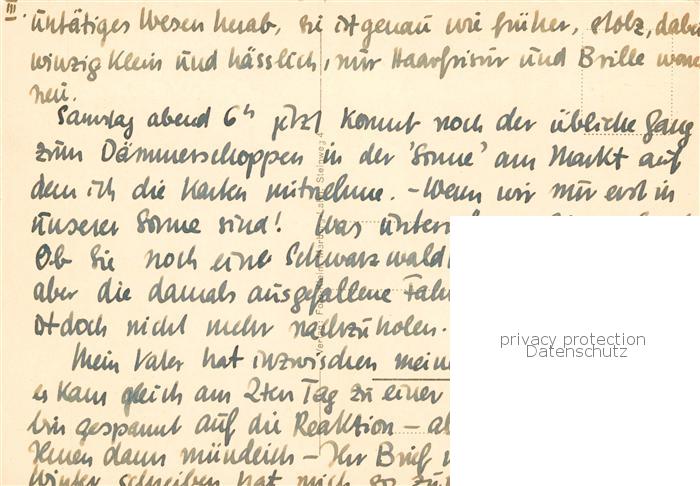 III.
untätiges Wesen herab, sie ist genau wie früher, stolz, dabei
winzig klein und hässlich, nur Haarfrisur und Brille waren
neu.
Samstag abend 6h jetzt kommt noch der übliche Gang
zum Dämmerschoppen in der 'Sonne' am Markt auf
dem ich die Karten mitnehme. - Wenn wir nur erst in
unserer Sonne sind! Was
Ob Sie noch eine Schwarzwald
aber die damals ausgefallene
ist doch nicht mehr nachzuholen.
Mein Vater hat inzwischen
er kam gleich am 2ten Tag zu einer
bin gespannt auf die Reaktion -
Ihnen dann mündlich - Ihr Brief
Winter schreiben hat mich so
privacy protection
Datenschutz